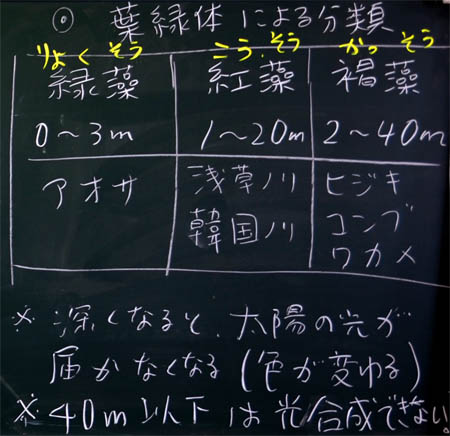 ◎ 葉緑体による分類
りょくそう こうそう かっそう
緑藻 紅藻 褐藻
0～3m 1～20m 2～40m
アオサ 浅草ノリ ヒジキ
韓国ノリ コンブ
ワカメ
※深くなると、太陽の光が
届かなくなる(色が変わる)
※40m以下は光合成できない。